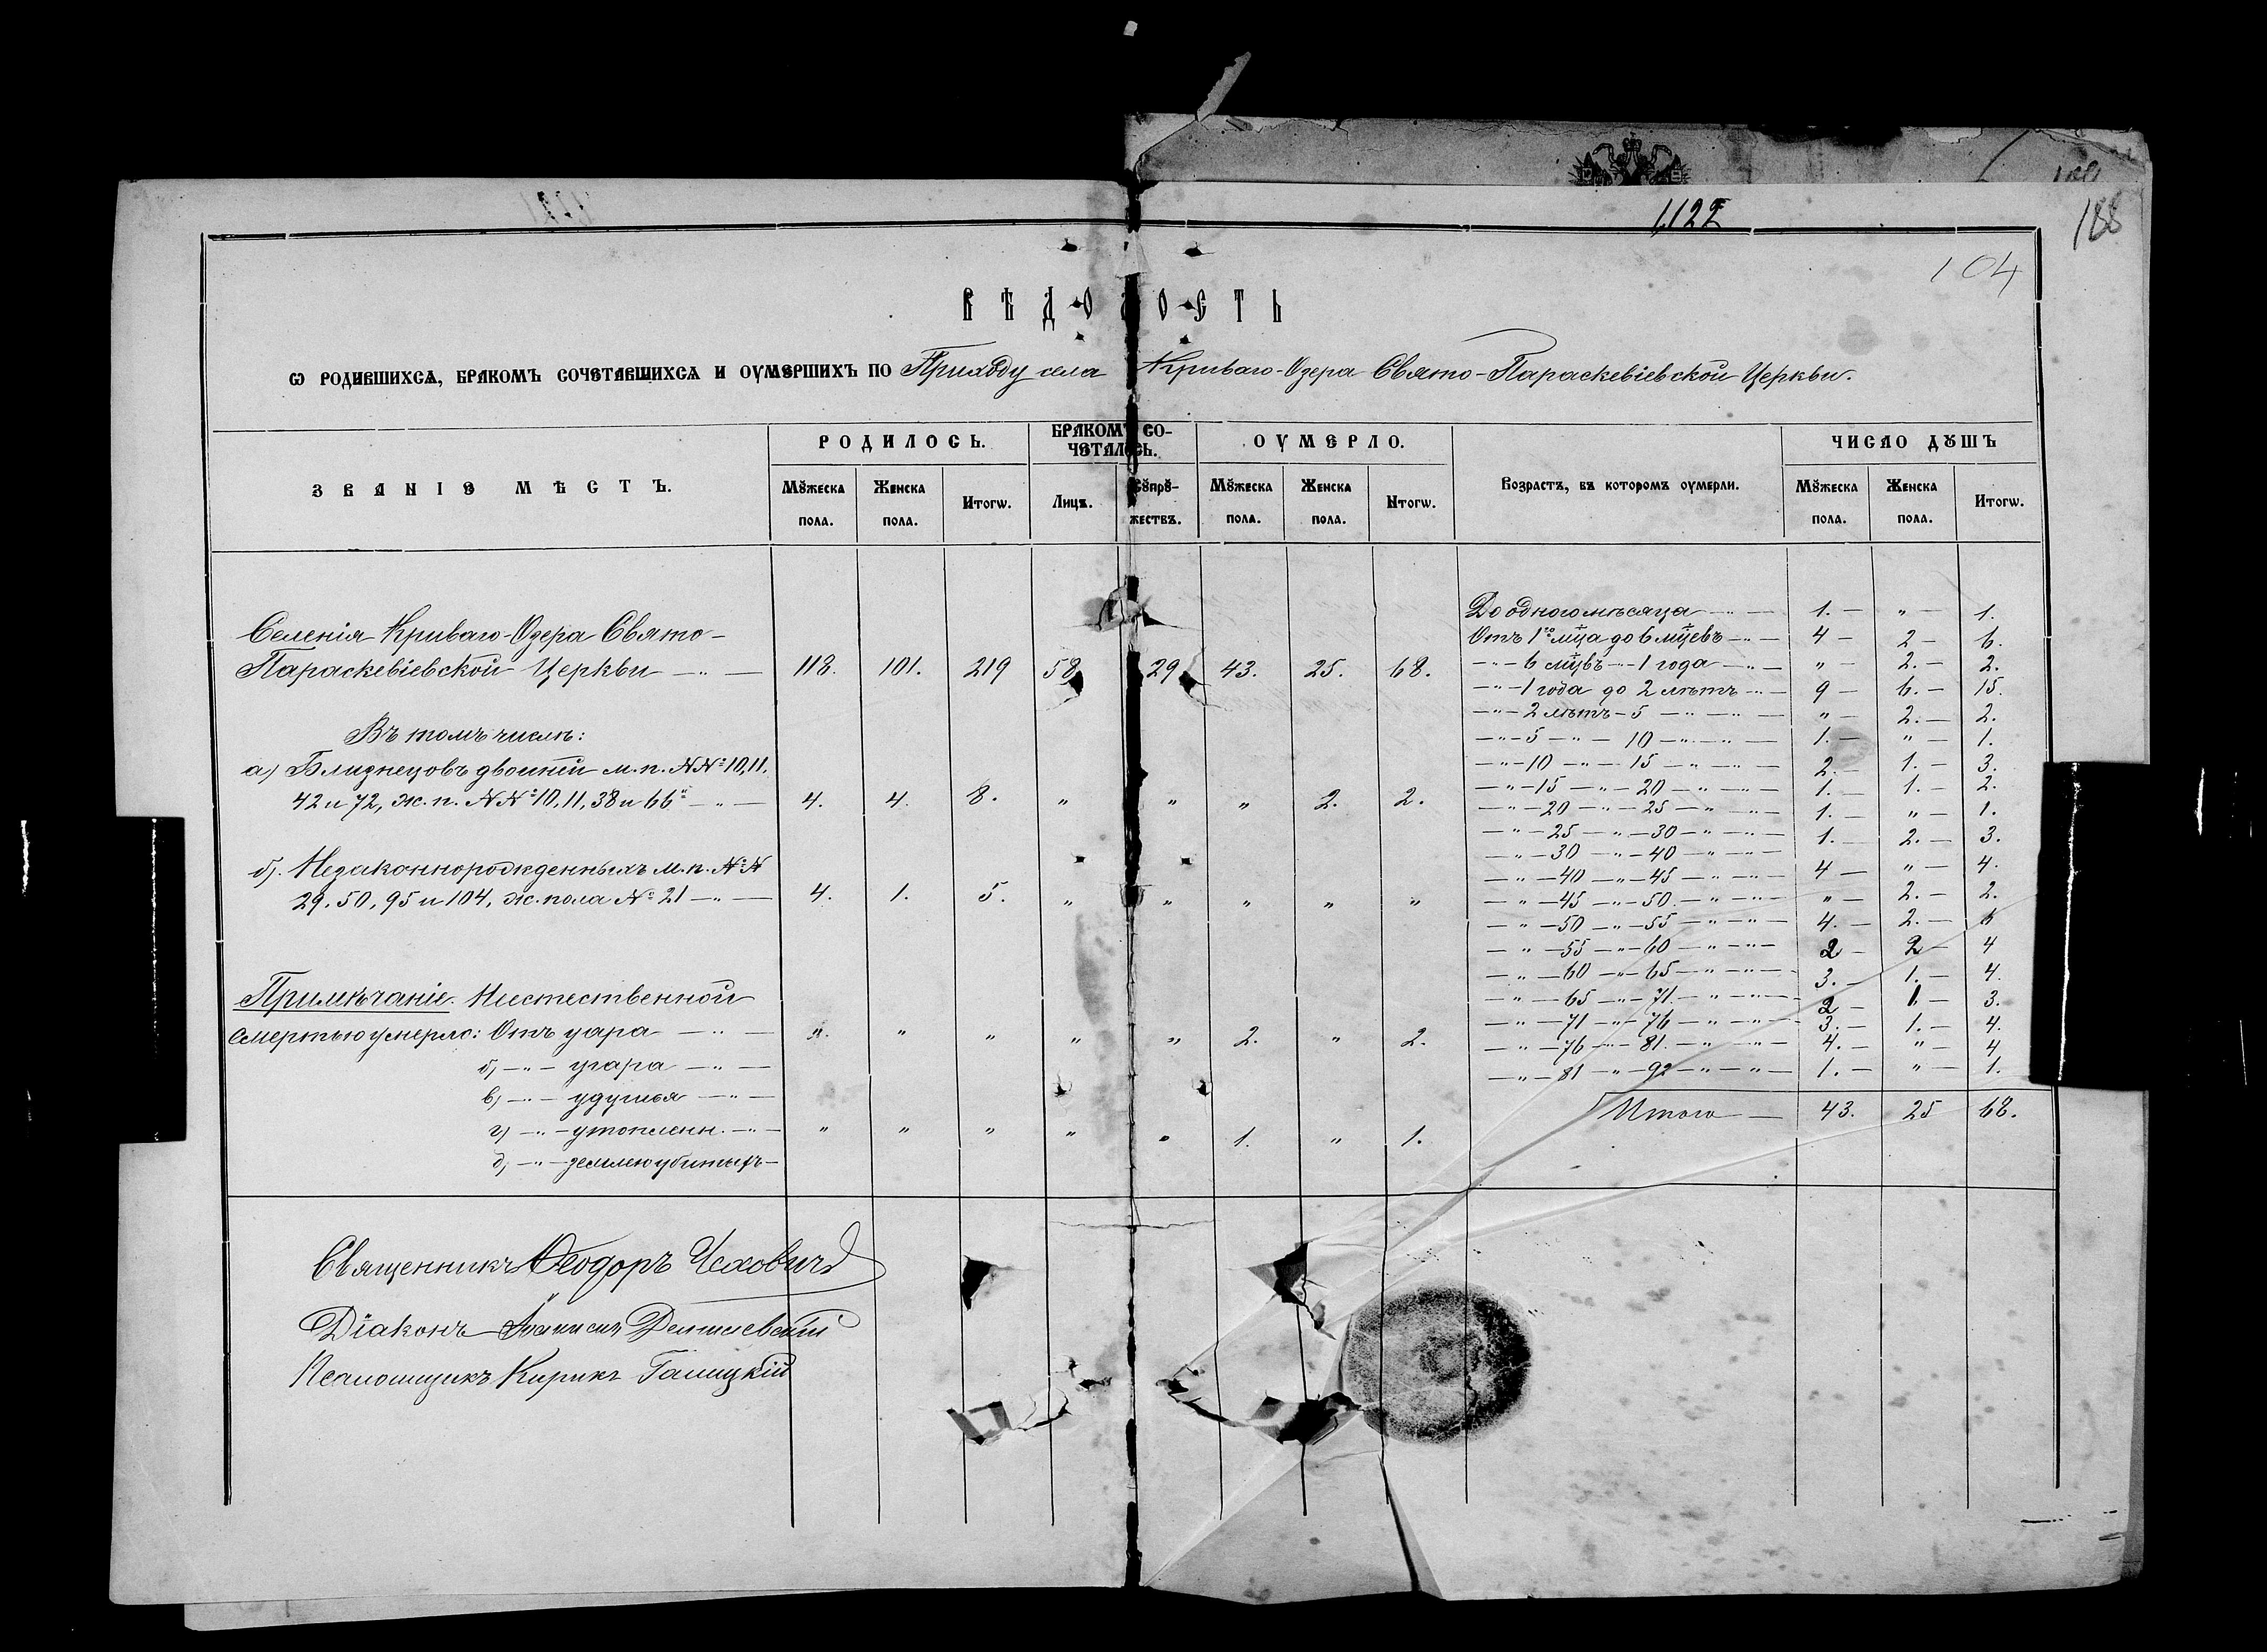 1122
188
104
ВѢДОМОСТЬ
Ѡ РОДИВШИХСѦ, БРАКОМЪ СОЧЕТАВШИХСѦ И ОУМЕРШИХЪ ПО Приходу села Криваго-Озера Свято-Параскевіевской Церкви.
ЗВАНІЕ МѢСТЪ.
РОДИЛОСЬ.
БРАКОМЪ СО-
ЧЕТАЛОСЬ.
ОУМЕРЛО.
Возрастъ, въ которомъ оумерли.
ЧИСЛО ДꙊШЪ
Мꙋжеска пола. Женска пола. Итогѡ. Лицъ. Сꙋпрꙋ-жествъ. Мꙋжеска пола. Женска пола. Итогѡ. Мꙋжеска пола. Женска пола. Итогѡ.
Селенія Криваго-Озера Свято-
Параскевіевской Церкви — „ — 118. 101. 219 58 29 43. 25. 68.
Въ томъ числѣ:
а) Близнецовъ двойній м. п. №№ 10, 11.
42 и 72, ж. п. №№ 10, 11, 38 и 66 — „ — 4. 4. 8. „ „ „ 2. 2.
б). Незаконнорожденныхъ м. п. №№
29. 50. 95 и 104, ж. пола № 21 — „ — 4. 1. 5. „ „ „ „ „
Примѣчаніе. Неестественной
смертью умерло: Отъ удара — „ — „ „ „ „ „ 2. „ 2.
б) — „ — угара — „ —
в) — „ — удушья — „ —
г) — „ — утопленн. — „ — „ „ „ „ „ 1. „ 1.
д) — „ — землею убитыхъ —
До одного мѣсяца — „ — 1. — „ — 1.
Отъ 1го мца до 6 мцевъ — „ — 4 — 2 — 6.
— „ — 6 мцвъ — „ — 1 года — „ — „ — 2. — 2.
— „ — 1 года до 2 лѣтъ — „ — 9 — 6. — 15.
— „ — 2 лѣтъ — 5 — „ — „ — „ — 2. — 2.
— „ — 5 — „ — 10 — „ — „ — 1. — „ — 1.
— „ — 10 — „ — 15 — „ — „ — 2. — 1. — 3.
— „ — 15 — „ — 20 — „ — „ — 1. — 1. — 2.
— „ — 20 — „ — 25 — „ — „ — 1. — „ — 1.
— „ — 25 — „ — 30 — „ — „ — 1. — 2. — 3.
— „ — 30 — „ — 40 — „ — „ —
— „ — 40 — „ — 45 — „ — „ — 4 — „ — 4.
— „ — 45 — „ — 50. — „ — „ — „ — 2. — 2.
— „ — 50 — „ — 55 — „ — „ — 4. — 2. — 6
— „ — 55 — „ — 60 — „ — „ — 2 — 2 — 4
— „ — 60 — „ — 65 — „ — „ — 3. — 1. — 4.
— „ — 65 — „ — 71. — „ — „ — 2 — 1. — 3.
— „ — 71 — „ — 76 — „ — „ — 3. — 1. — 4.
— „ — 76 — „ — 81. — „ — „ — 4. — „ — 4
— „ — 81 — „ — 92 — „ — „ — 1. — „ — 1.
Итого — 43. 25 68.
Священникъ Ѳеодоръ Чеховичъ
Діаконъ
Псаломщикъ Кирикъ Галицкій